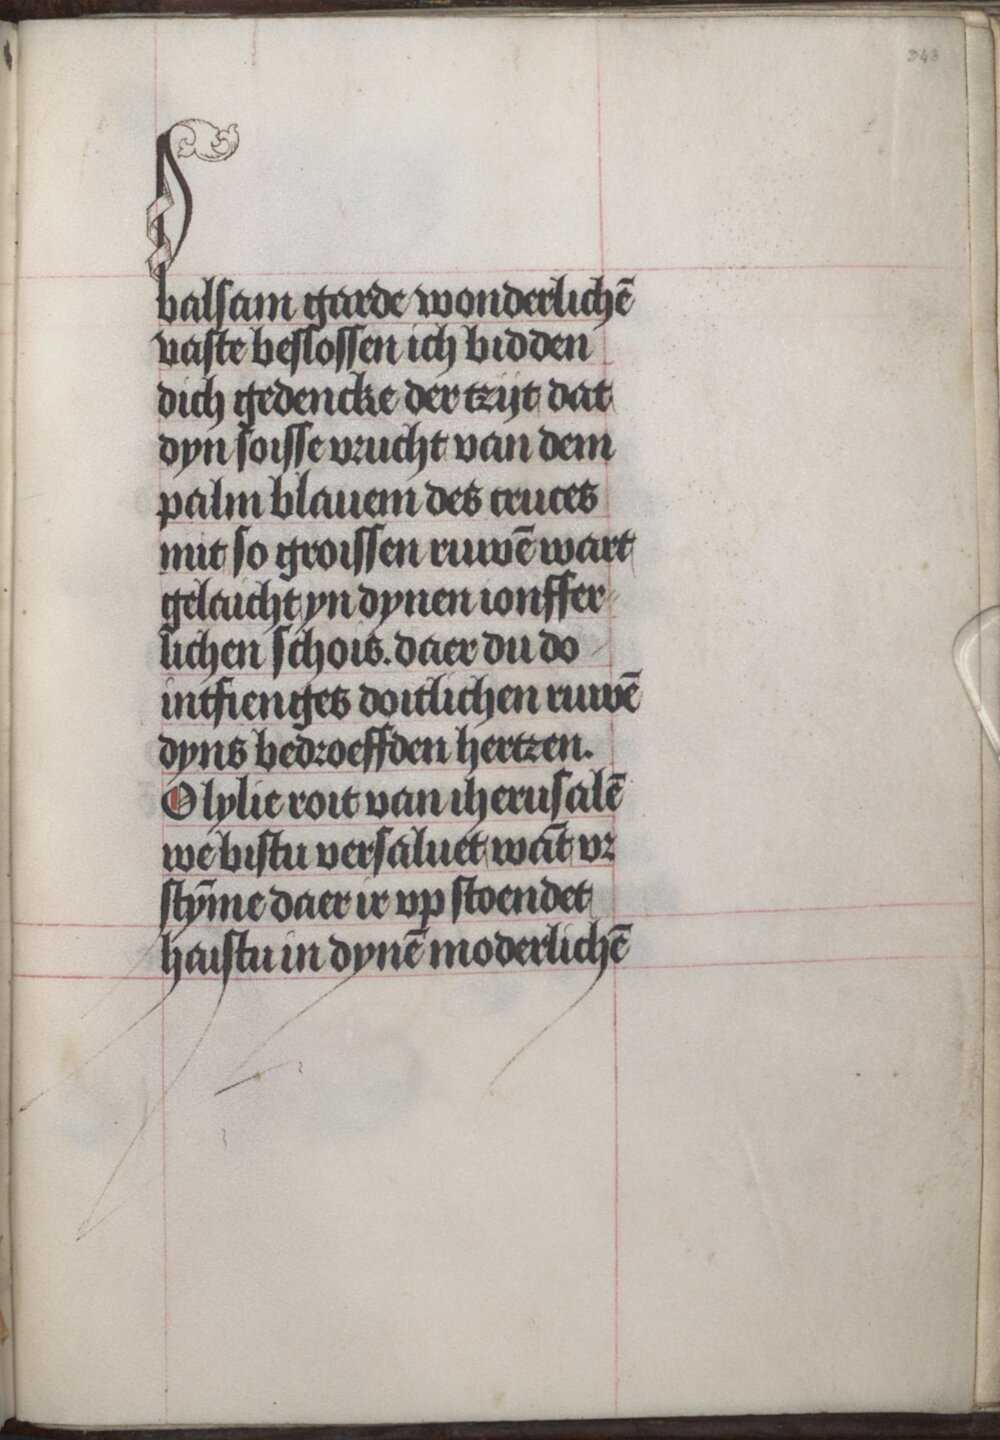 343
balsam garde wonderlichē
vaste beslossen ich bidden
dich gedencke der tzijt dat
dyn soisse vrucht van dem
palm blauem des cruces
mit so groissen ruwē wart
gelaicht yn dynen ionffer
lichen schois. daer du do
intfienges doitlichen ruwē
dyns bedroeffden hertzen.
O lylie roit van iherusalē
we bistu versaluet wāt vr
stȳme daer ir vp stoendet
haistu in dynē moderlichē